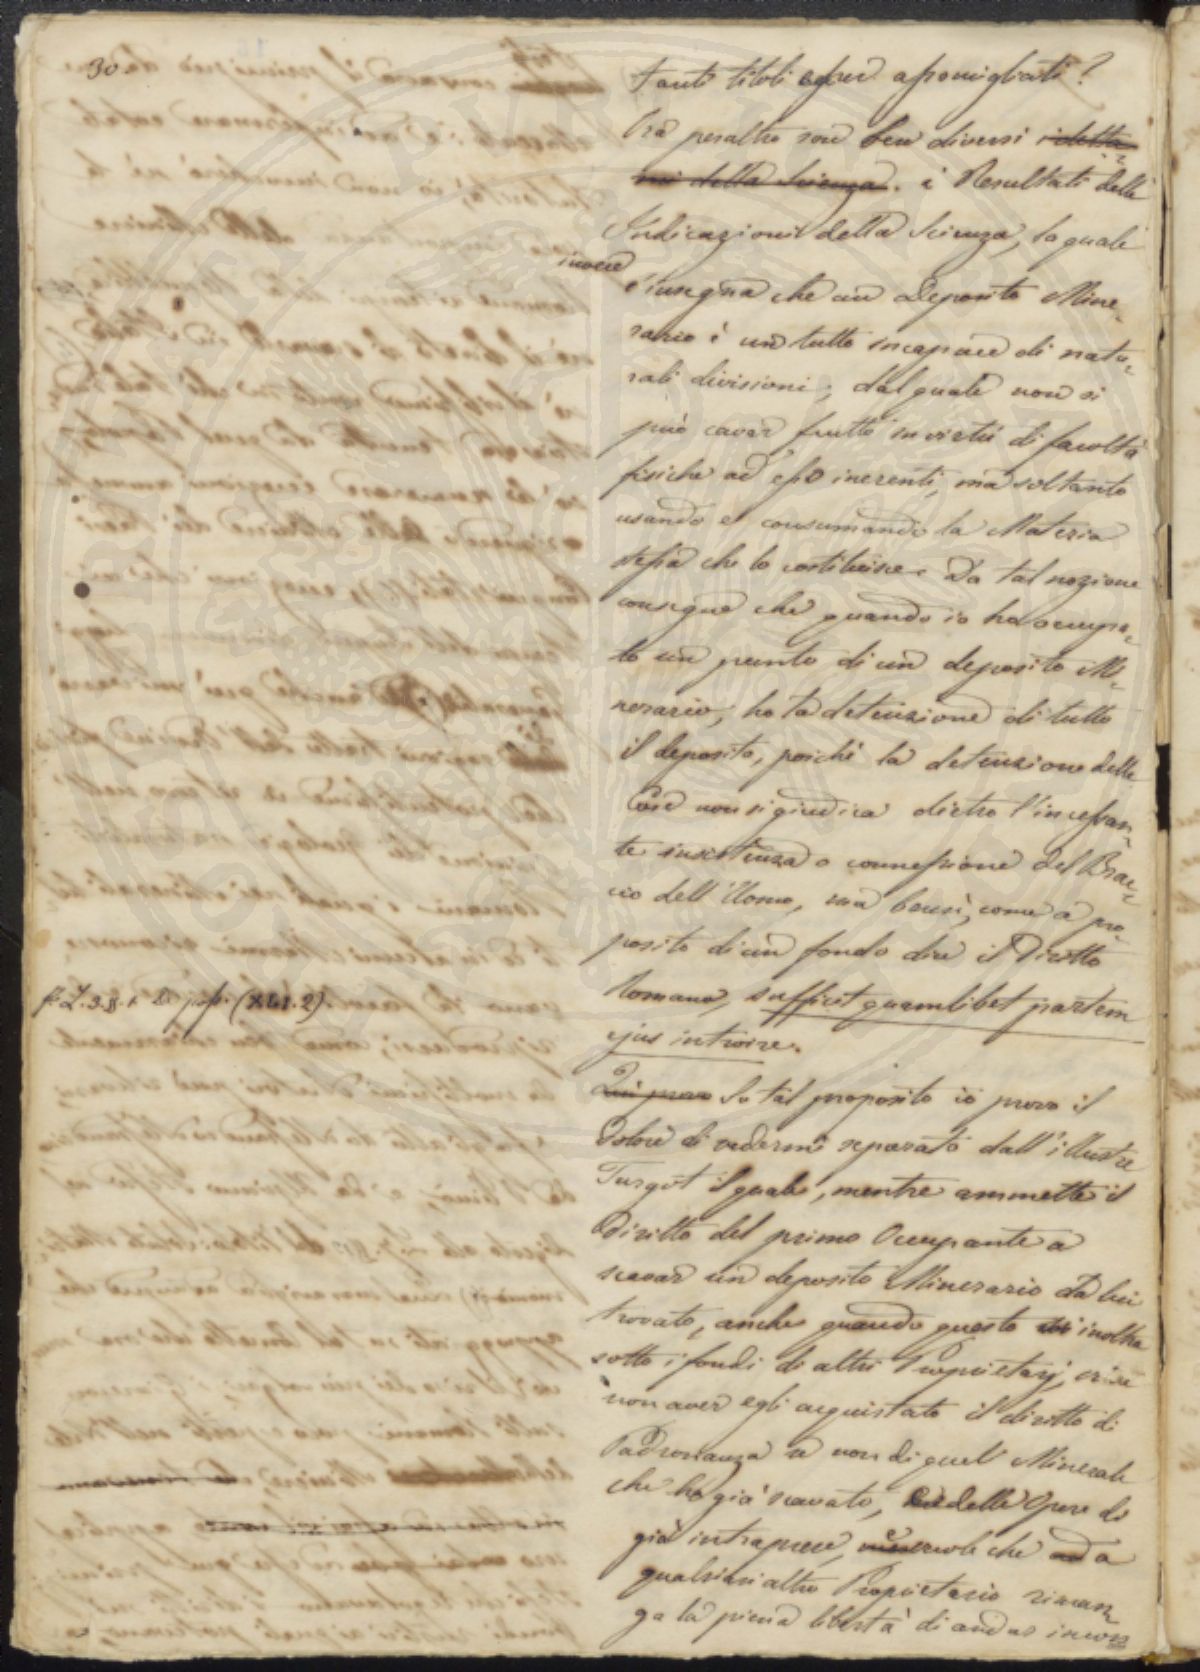 30
Tanti titoli esser assomigliati?
Ora peraltro son ben diversi i detta-
mi della Scienza. i Resultati delle
Indicazioni della Scienza, la quale
invece
c'insegna che un Deposito Mine-
rario è un tutto incapace di natu-
rali divisioni, dal quale non si
può cavar frutto in virtù di facoltà
fisiche ad esso inerenti, ma soltanto
usando e consumando la Materia
stessa che lo costituisce. Da tal nozione
consegue che quando io ho occupa-
to un punto di un deposito Mi-
nerario, ho la detenzione di tutto
il deposito, poichè la detenzione delle
Cose non si giudica dietro l'incessan-
te insistenza o connessione del Brac-
cio dell'Uomo, ma bensì, come a pro-
posito di un fondo dice il Diritto
Romano, sufficit quamlibet partem
ff. L. 3. §. 1 De poss. (XLI. 2).
ejus introire.
Qui provo In tal proposito io provo il
Dolore di vedermi separato dall'illustre
Turgot il quale, mentre ammette il
Diritto del primo Occupante a
scavar un deposito Minerario da lui
trovato, anche quando questo inoltra
sotto i fondi di altri Proprietarj, crede
non aver egli acquistato il diritto di
Padronanza se non di quel Minerale
che ha già scavato, e delle Opere di
già intraprese, che a
qualsiasi altro Proprietario riman-
ga la piena libertà di andar incon